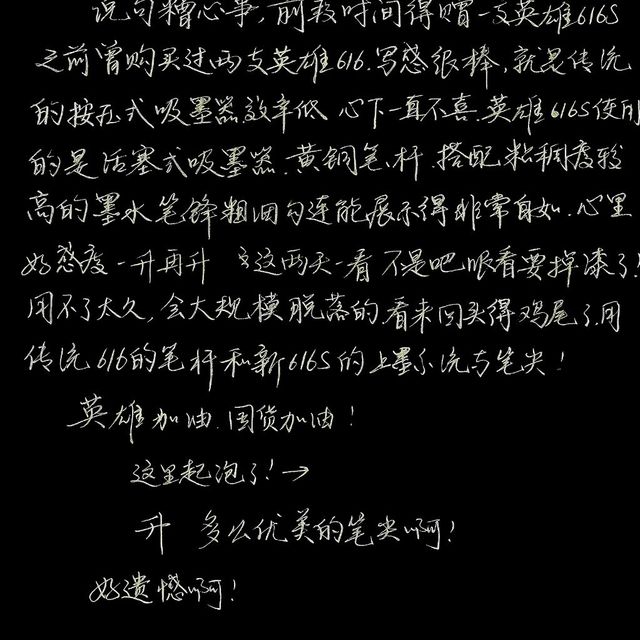 说句糟心事,前段时间得赠一支英雄616S
之前曾购买过两支英雄616.写感很棒,就是传统
的按压式吸墨器效率低 心下一直不喜.英雄616S使用
的是活塞式吸墨器.黄铜笔杆.搭配粘稠度较
高的墨水笔锋粗细勾连能展示得非常自如.心里
好感度一升再升 这两天一看 不是吧眼看要掉漆了!
用不了太久,会大规模脱落的.看来回头得鸡尾了.用
传统616的笔杆和新616S的上墨系统与笔尖!
英雄加油.国货加油!
这里起泡了!→
升 多么优美的笔尖啊!
好遗憾啊!